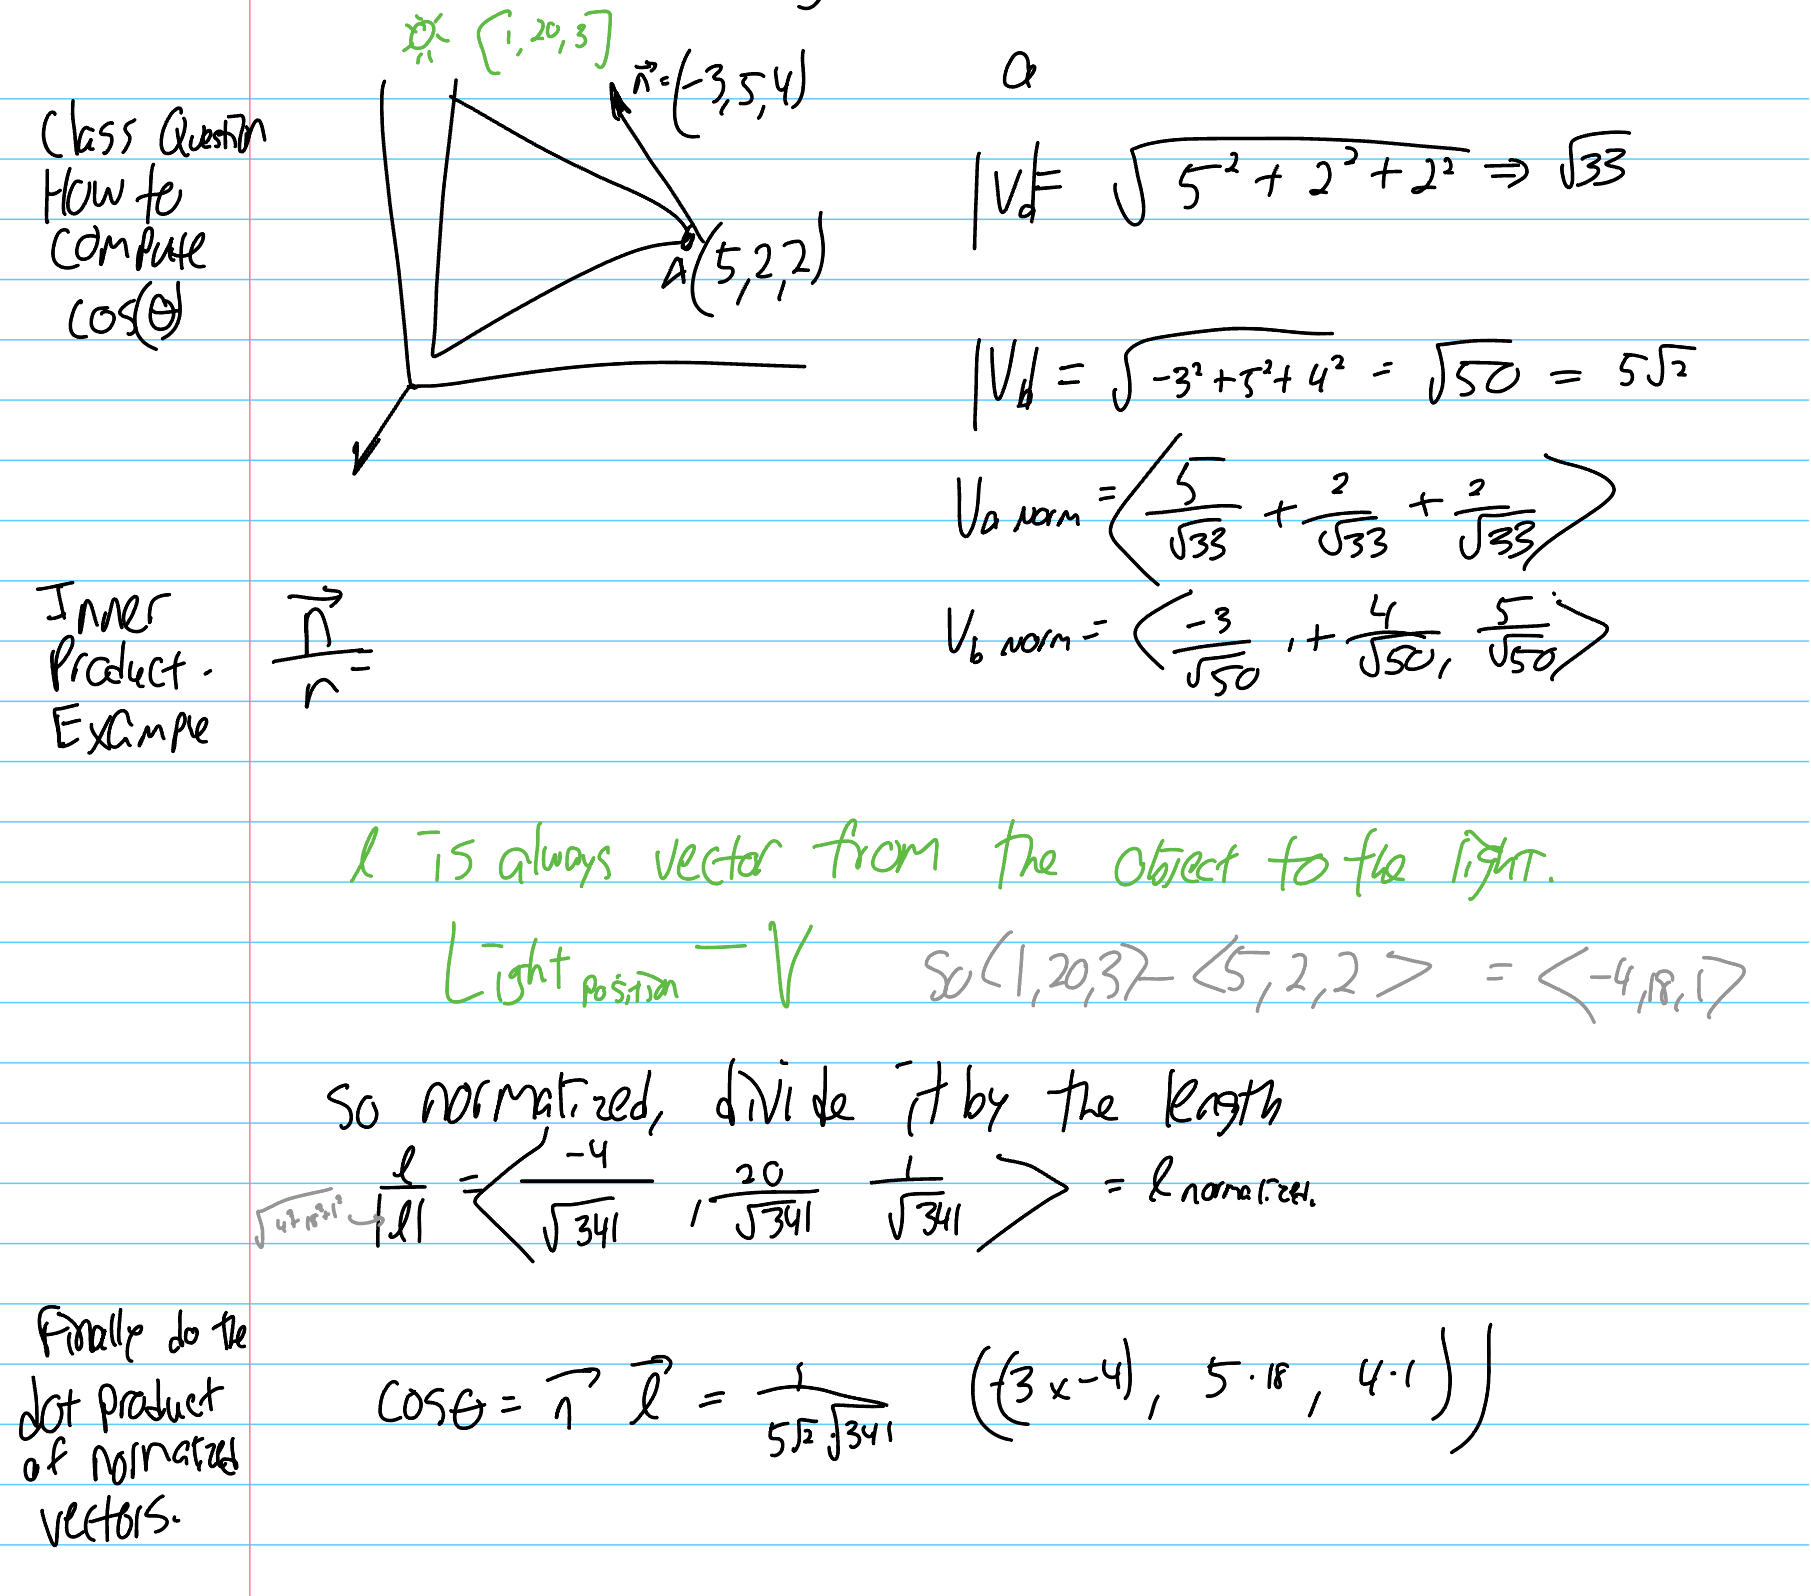 [1, 20, 3]
n⃗ = (-3, 5, 4)
A (5, 2, 2)
Class Question
How to
compute
cos(θ)
a
|Va| = √(5² + 2² + 2²) ⇒ √33
|Vb| = √(-3² + 5² + 4²) = √50 = 5√2
Va norm = < 5/√33 + 2/√33 + 2/√33 >
Vb norm = < -3/√50 , + 4/√50, 5/√50 >
Inner
Product.
Example
n⃗/n =
l is always vector from the object to the light.
Light position - V so (1, 20, 3) - <5, 2, 2> = <-4, 18, 1>
so normalized, divide it by the length
√(4² + 18² + 1²) l/|l| = < -4/√341 , 20/√341 1/√341 > = l normalized.
Finally do the
dot product
of normalized
vectors.
cosθ = n⃗ l⃗ = 1/(5√2 · √341) ((-3 x -4), 5·18, 4·1))